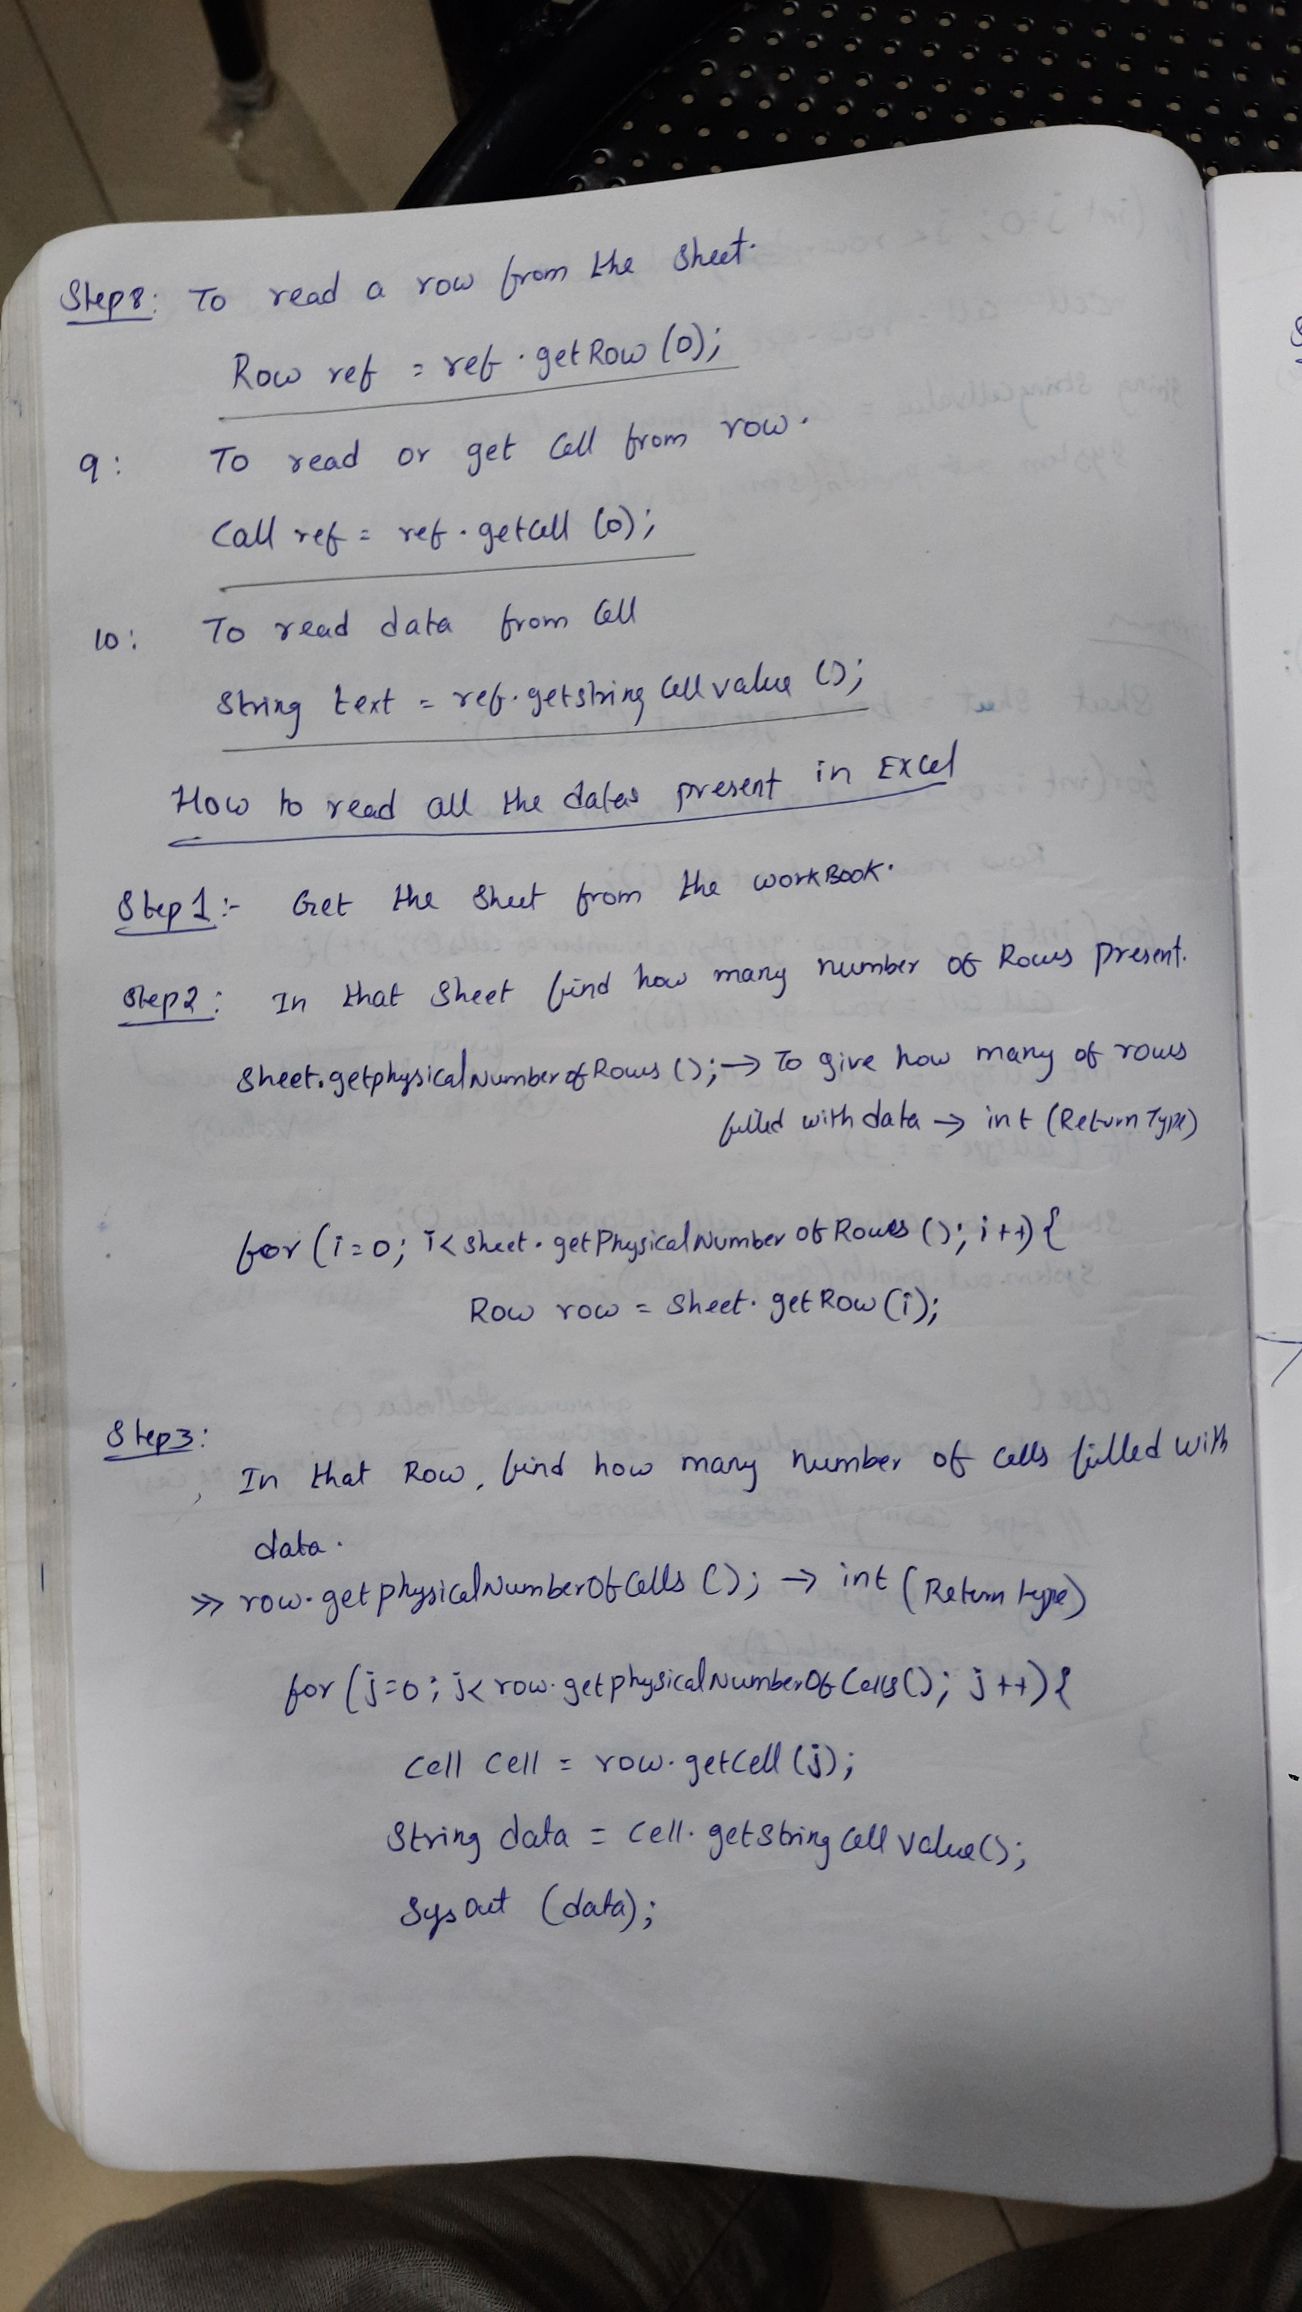 Step 8: To read a row from the sheet.
Row ref = ref.getRow(0);
9: To read or get Cell from row.
Call ref = ref.getcell (0);
10: To read data from Cell
String text = ref.getstring Cell value ();
How to read all the datas present in Excel
Step 1:- Get the Sheet from the workBook.
Step 2: In that Sheet find how many number of Rows present.
Sheet.getphysicalNumberofRows (); → To give how many of rows
filled with data → int (Return Type)
for (i=0; i<sheet.getPhysicalNumberofRows (); i++) {
Row row = Sheet.getRow(i);
Step 3:
In that Row, find how many number of cells filled with
data.
>> row.getphysicalNumberOfCells (); → int (Return type)
for (j=0; j<row.getphysicalNumberOfCells(); j++) {
Cell cell = row.getCell (j);
String data = cell.getString cell value();
Sysout (data);